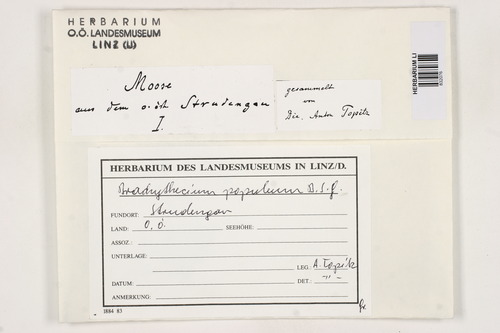 HERBARIUM
O.Ö. LANDESMUSEUM
LINZ (LI)
Moose
aus dem o.öst. Strudengau
I.
gesammelt
von
Dir. Anton Topitz
HERBARIUM LI
HERBARIUM DES LANDESMUSEUMS IN LINZ/D.
Brachythecium populeum B.S.G.
FUNDORT: Strudengau
LAND: O.Ö. SEEHÖHE:
ASSOZ.:
UNTERLAGE:
LEG. A. Topitz
DATUM: DET.: -"-
ANMERKUNG:
1884 83